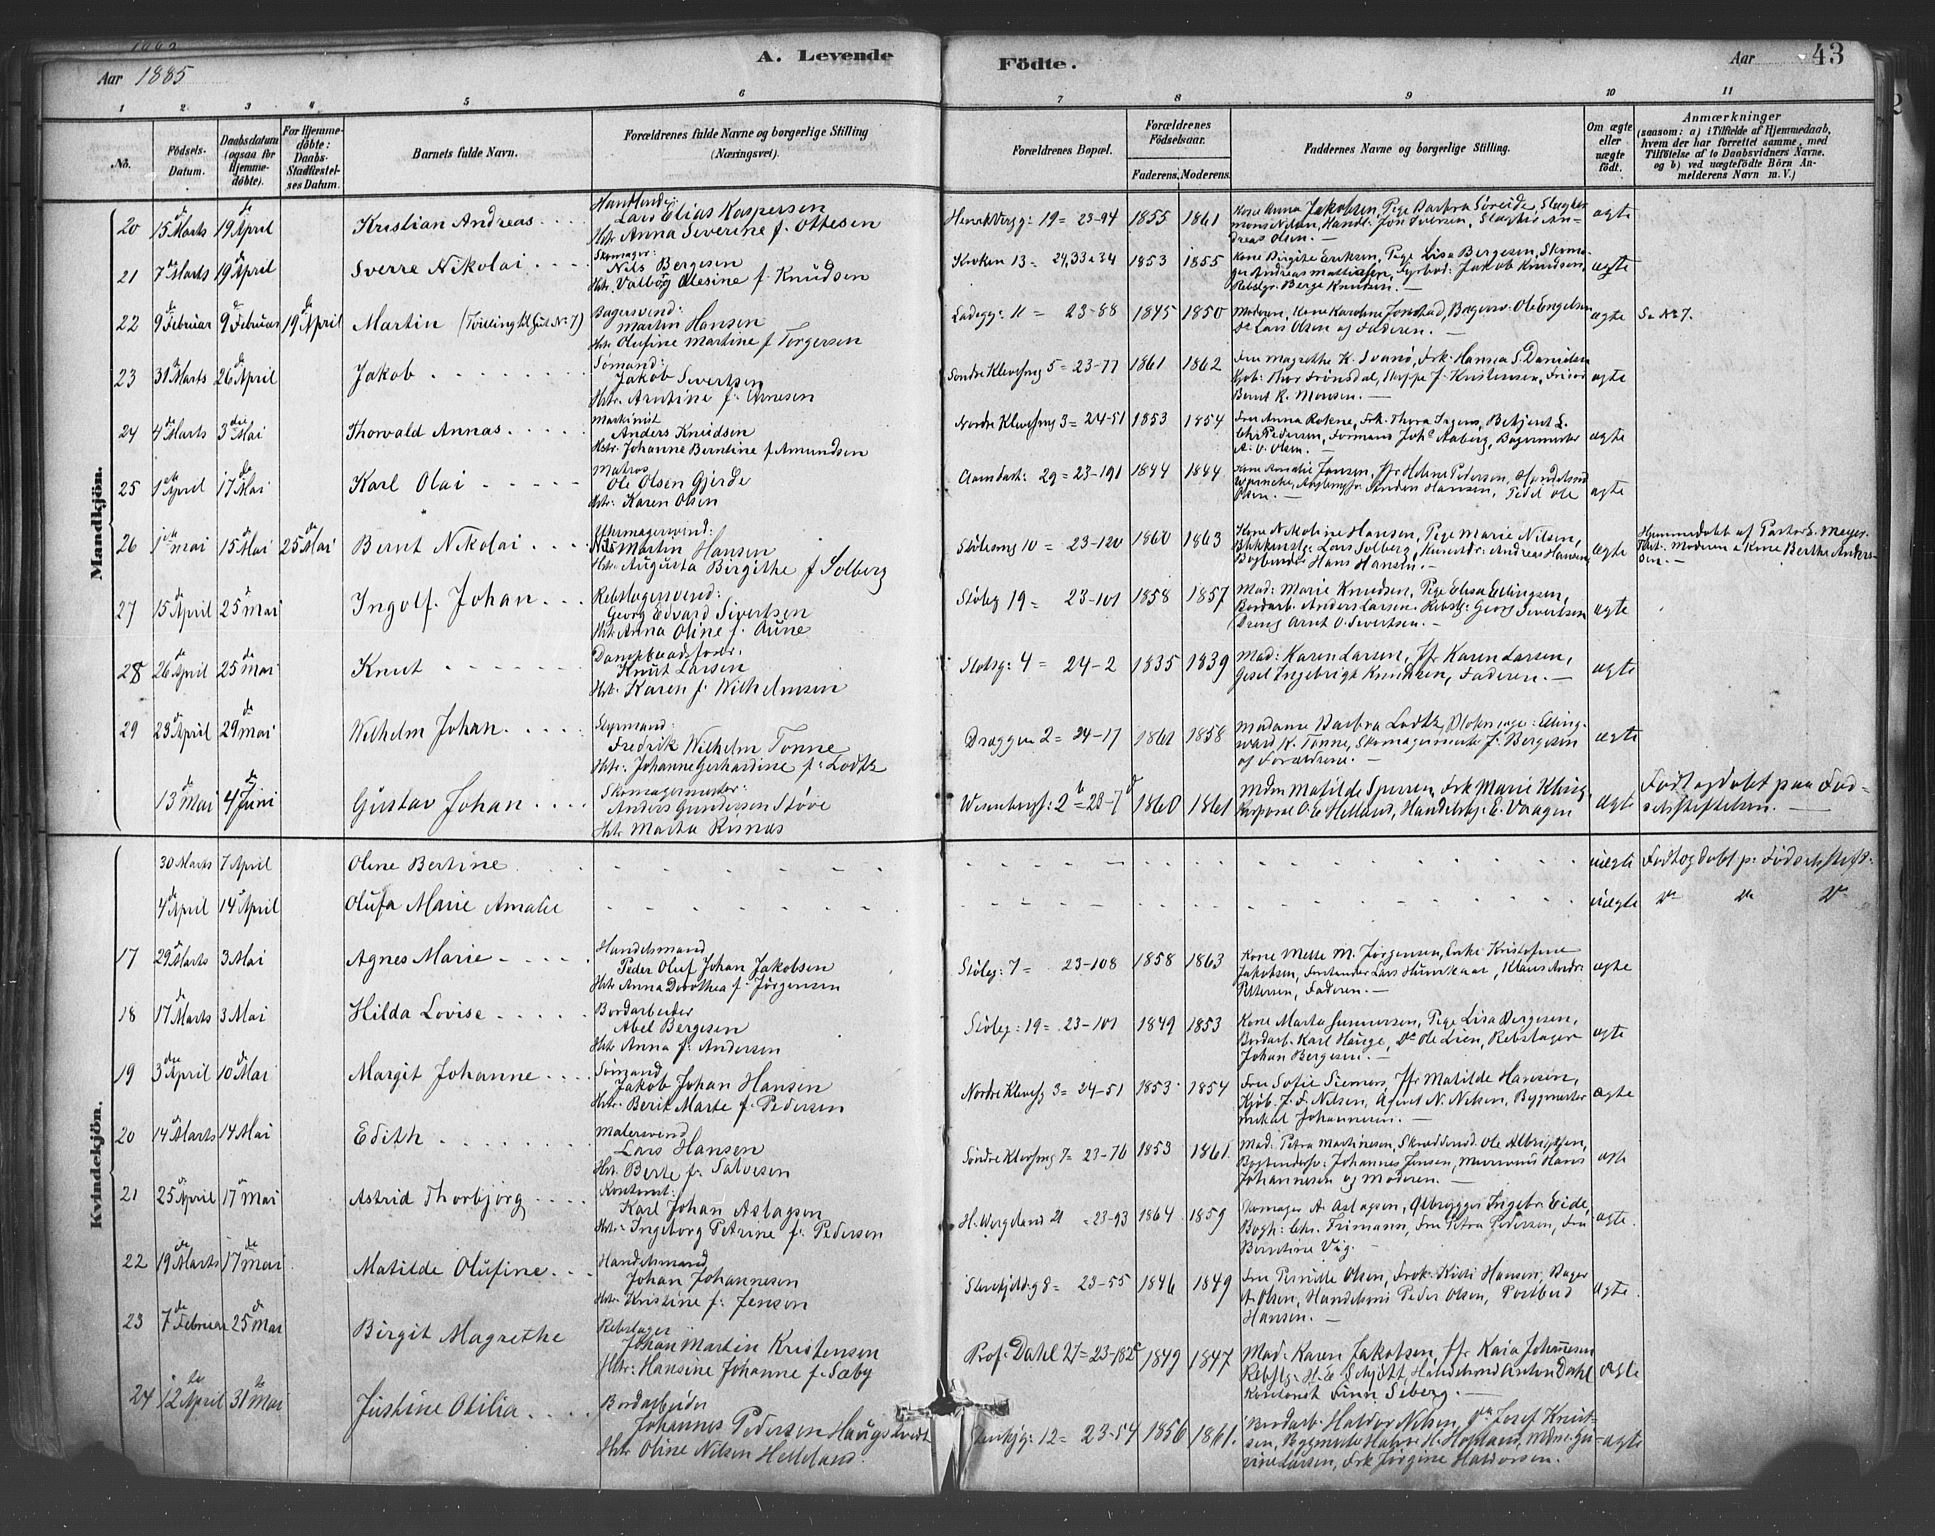 Aar 1885
A. Levende
Födte.
Aar
43
1 2 3 4 5 6 7 8 9 10 11
No.
Födsels-Datum.
Daabsdatum (ogsaa for Hjemme-döbte).
For Hjemme-döbte: Daabs-Stadfæstel-ses Datum.
Barnets fulde Navn.
Forældrenes fulde Navne og borgerlige Stilling (Næringsvei).
Forældrenes Bopæl.
Forældrenes Födselsaar.
Faderens. Moderens.
Faddernes Navne og borgerlige Stilling.
Om ægte eller uægte födt.
Anmærkninger
(saasom: a) i Tilfælde af Hjemmedaab, hvem der har forrettet samme, med Tilföielse af to Daabsvidners Navne. og b) ved uægtefödte Börn An-melderens Navn m. V.)
Mandkjön.
20 15 de Marts 19 de April Kristian Andreas
Lars Elias Kaspersen
Hstr Anna Severine f. Ottesen
19 = 23-94 1855 1861
Kone Anna Jakobsen, Pige Barbra Soreide,
dreas Olsen. ægte
21 7 de Marts 19 de April Sverre Nikolai
Skomager:
Nils Bergesen
Hstr. Valborg Olesine f. Knudsen
Kroken 13 = 24,33 a 34 1853 1855
Kone Birgite Eriksen, Pige Lisa Bergesen,
Jakob Knudsen,
Rebslgr. Berge Knudsen. ægte
22 9 de Februar 9 de Februar 19 de April Martin (Tvilling til Gut No 7)
Bagersvend:
Martin Hansen
Hstr. Olufine Martine f. Torgersen
Ladegg: 11 = 23-88 1845 1850
Moderen, Kone Karoline Jonstad, Bagersv. Ole Engelsen
Lars Olsen og Faderen. ægte Se No 7.
23 31 te Marts 26 de April Jakob
Sømand:
Jakob Sivertsen
Hstr. Arntine f. Arnesen
Søndre Klevesmg 5 = 23-77 1861 1862
Fru Magrethe K. Svanø, Frk. Hanna S. Danielsen
Kristensen,
Bernt R. Monsen. ægte
24 4 de Marts 3 die Mai Thorvald Annas
Maskinist
Anders Knudsen
Hstr. Johanne Berntine f. Amundsen
Nordre Klevesmg 3 = 24-51 1853 1854
Fru Anna Rokne, Frk. Thora
Chr. Pedersen, Formand Johs Aaberg, Bagermester
A. O. Olsen. ægte
25 1 ste April 17 de Mai Karl Olai
Matros
Ole Olsen Gjerde
Hstr. Karen Olsen
29 = 23-191 1844 1844
Jansen, Jfr Helene Pedersen,
Anders Hansen,
Olsen. ægte
26 1 ste Mai 15 de Mai 25 de Mai Bernt Nikolai
Uhrmagersvend:
Nils Martin Hansen
Hstr. Augusta Birgithe f Solberg
Stølesmg 10 = 23-120 1860 1863
Kone Nikoline Hansen, Pige Marie Nilsen,
Lars Solberg, Andreas Hansen,
Hans Hansen. ægte
Hjemmedøbt af Pastor S. Meyer.
Test. Moderen & Kone Berthe Anders-
sen.
27 15 de April 25 de Mai Ingolf Johan
Rebslagersvend:
Georg Edvard Sivertsen
Hstr Anna Oline f. Aune
Støleg 19 = 23-101 1858 1857
Mad: Marie Knudsen, Pige Elisa Ellingsen,
Bordarb. Anders Larsen. Rebslg: Georg Sivertsen
Dreng Arnt O. Sivertsen. ægte
28 26 de April 25 de Mai Knut
Knut Larsen
Hstr. Karen f. Wilhelmsen
Slotsg: 4 = 24-2 1835 1839
Mad: Karen Larsen, Jfr Karen Larsen,
Gesel Ingebrigt Knudsen, Faderen. ægte
29 23 de April 29 de Mai Wilhelm Johan
Styrmand:
Fredrik Wilhelm Tonne
Hstr: Johanne Gerhardine f: Lodtz
Dræggen 2 = 24-17 1861 1858
Madame Barbra Lodtz,
K. Tonne, Skomagermester J. Bergesen
og Forældrene. ægte
13 de Mai 4 de Juni Gustav Johan
Skomagermester:
Anders Gundersen Støve
Hstr Marta Risnæs
2 b = 23-7 d 1860 1861
Mdm Matilde Sperren, Frk Marie
Korporal O. E. Helland, Handelsbj: E. Vaagen ægte
Født og døbt paa Fød-
selsstiftelsen.
Kvindekjön.
30 Marts 7 April Oline Bertine uægte Født og døbt p: Fødselsstift:
4 de April 14 de April Olufa Marie Amalie uægte do do do
17 29 de Marts 3 Mai Agnes Marie
Handelsmand
Peder Oluf Johan Jakobsen
Hstr Anna Dorothea f. Jørgensen
Støleg: 7 = 23-108 1858 1863
Kone Mette M. Jørgensen, Enke Kristofine
Jakobsen, Forstander Lars Hunskaar, Klaus Andr.
Pettersen, Faderen. ægte
18 17 de Marts 3 Mai Hilda Lovise
Bordarbeider
Abel Bergesen
Hstr Anna f. Andersen
Støleg: 19 = 23-101 1849 1853
Kone Marta Gunnersen, Pige Lisa Bergesen,
Bordarb. Karl Hauge, Do Ole Lien, Rebslager
Johan Bergesen. ægte
19 3 die April 10 de Mai Margit Johanne
Sømand
Jakob Johan Hansen
Hstr. Berit Marte f. Pedersen
Nordre Klevesg 3 = 24-51 1853 1854
Fru Sofie Siemers, Jfr Matilde Hansen,
Kjøb. J. F. Nilsen, Agent N. Nilsen, Bygmester
Mikal Johannesen. ægte
20 14 de Marts 14 de Mai Edith
Malersvend
Lars Hansen
Hstr. Berte f. Salvesen
Søndre Klevesmg 7 = 23-76 1853 1861
Mad: Petra Martinesen, Ole Albrigtsen,
Johannes Jensen, Hans
Johannesen og Moderen. ægte
21 25 de April 17 de Mai Astrid Thorbjörg
Kontorist:
Karl Johan Aslagsen
Hstr. Ingeborg Petrine f. Pedersen
H. Wergeland 21 = 23-93 1864 1859
A. Aslagsen, Ølbrygger Ingebr. Eide,
Bogh: Chr. Fru Petra Pedersen, Fru
Berntine Vig. ægte
22 19 de Marts 17 de Mai Matilde Olufine
Handelsmand
Johan Johannesen
Hstr. Kristine f: Jensen
8 = 23-55 1846 1849
Fru Pernille Olsen, Frøk: Kisti Hansen, Bager
A. Olsen, Peder Olsen, Postbud
Hansen. ægte
23 7 de Februar 25 de Mai Birgit Magrethe
Rebslager
Johan Martin Kristensen
Hstr: Hansine Johanne f. Sæby
Prof. Dahl 27 = 23-182 1849 1847
Mad. Karen Jakobsen, Jfr Kaia Johannesen
Rebslg. H. E. Schjøtt, Anton Dahl
Finn Seberg. ægte
24 12 te April 31 te Mai Justine Otilia
Bordarbeider
Johannes Pedersen Haugstvedt
Hstr Oline Nilsen Helleland.
12 = 23-54 1856 1861.
Bordarb. Haldor Nilsen, Josef Knut-
sen, H. Hopland,
Larsen, Frk Jørgine Haldorsen. ægte